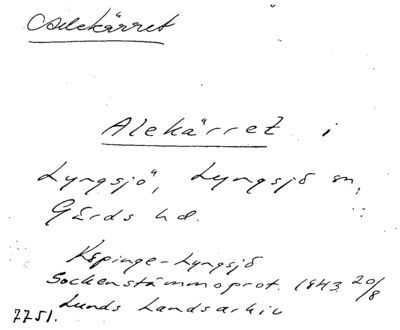 Alekärret
Alekärret i
Lyngsjö, Lyngsjö sn,
Gärds hd.
Köpinge-Lyngsjö
Sockenstämmoprot. 1843 20/8
Lunds Landsarkiv
7751.